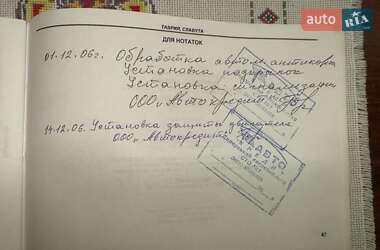 auto RIA
ТАВРИЯ, СЛАВУТА
ДЛЯ НОТАТОК
01.12.06г. Обработка автом. антикоры
Установка подкрылок
Установка сигнализации
ООО „Автокредит
14.12.06. Установка защиты двигателя
ООО „Автокредит
АВТО
47